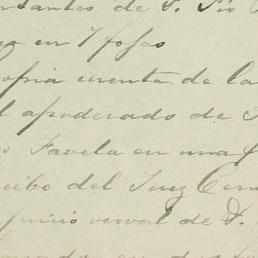 tantes de D. Pio
en 7 fojas
opia cuenta de la
apoderado de
Favela en una
cibo del Juez
juicio verval de D.